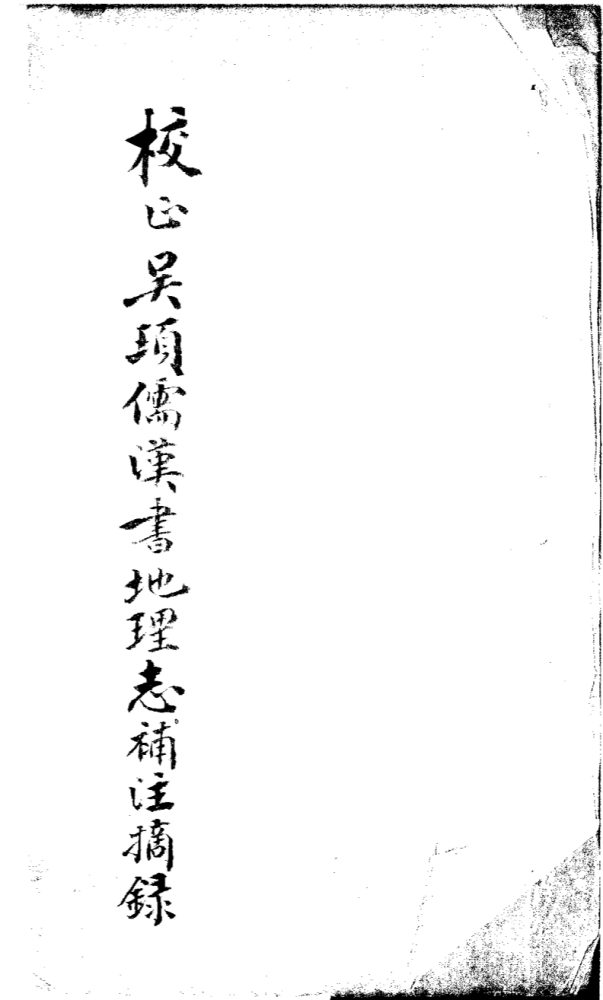 校正吴頊儒漢書地理志補注摘録